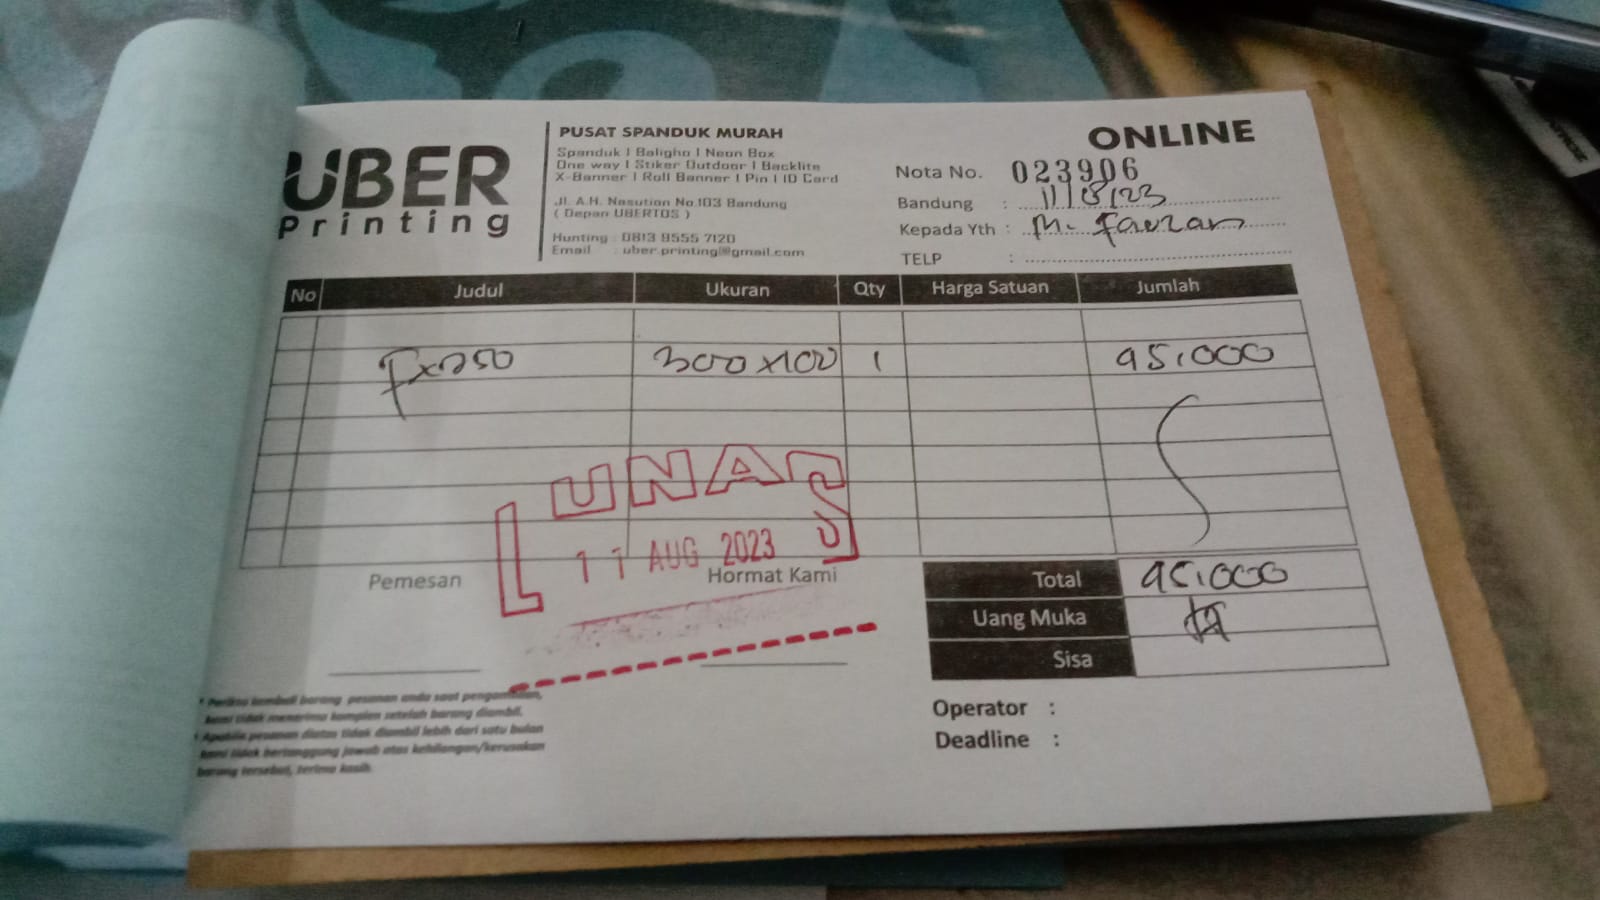 UBER
Printing
PUSAT SPANDUK MURAH
Spanduk | Baligho | Neon Box
One way | Stiker Outdoor | Backlite
X-Banner | Roll Banner | Pin | ID Card
Jl. A.H. Nasution No.103 Bandung
( Depan UBERTOS )
Hunting : 0813 9555 7120
Email : uber.printing@gmail.com
ONLINE
Nota No. 023906
Bandung : 11/8/23
Kepada Yth : M. Fauzan
TELP :
No Judul Ukuran Qty Harga Satuan Jumlah
300x100 1 95.000
LUNAS
11 AUG 2023
Pemesan Hormat Kami
Total 95.000
Uang Muka
Sisa
* Periksa kembali barang pesanan anda saat pengambilan,
kami tidak menerima komplen setelah barang diambil.
* Apabila pesanan diatas tidak diambil lebih dari satu bulan
kami tidak bertanggung jawab atas kehilangan/kerusakan
barang tersebut, terima kasih.
Operator :
Deadline :